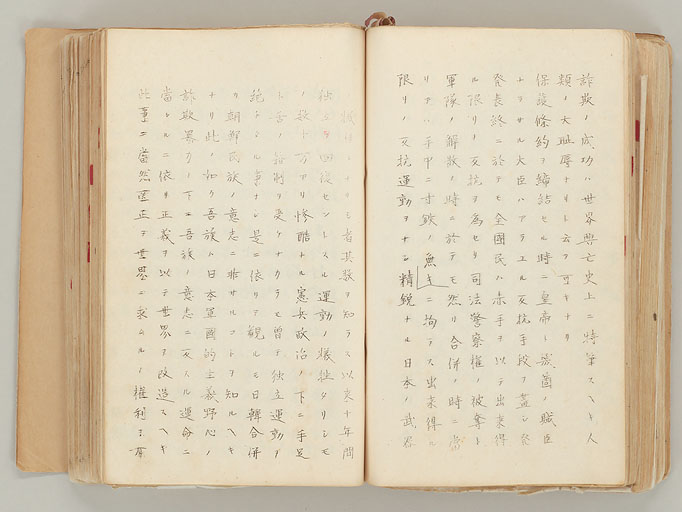 詐欺ノ成功ハ世界興亡史上ニ特筆スヘキ人
類ノ大恥辱ナリト云フ可キナリ
保護條約ヲ締結セル時ニ皇帝ト
ナラサル大臣ハアラユル反抗手段ヲ盡シ
發表終ニ於テモ全國民ハ赤手ヲ以テ出來得
ル限リノ反抗ヲ為セリ司法警察權ノ被奪ト
軍隊ノ解散ノ時ニ於テモ然リ合併ノ時ニ當
リテハ手中ニ寸鐵ノ無キニ拘ラス出來得ル
限リノ反抗運動ヲナシ精鋭ナル日本ノ武器
者其數ヲ知ラス以來十年間
獨立ヲ回復セントスル運動ノ犠牲タリシモ
ノ數十万アリ慘酷ナル憲兵政治ノ下ニ手足
ト舌ノ抑制ヲ受ケナカラモ曾テ獨立運動ヲ
絶チシ事ナシ是ニ依リテ觀ルモ日韓合併
カ朝鮮民族ノ意志ニ非サルコトヲ知ルヘキ
ナリ此ノ如ク吾族ハ日本軍國的主義野心ノ
詐欺暴力ノ下ニ吾族ノ意志ニ反スル運命ニ
當シルニ依リ正義ヲ以テ世界ヲ改造スヘキ
此事ニ當然匡正ヲ世界ニ求ムルノ權利ヲ有